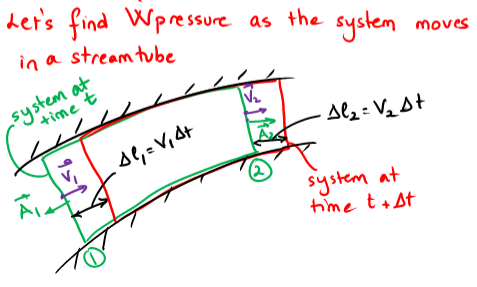 Let's find Wpressure as the system moves
in a streamtube
system at
time t
V⃗₂
Δl₂ = V₂ Δt
A⃗₂
Δl₁ = V₁Δt
V⃗₁
A⃗₁
②
system at
time t + Δt
①